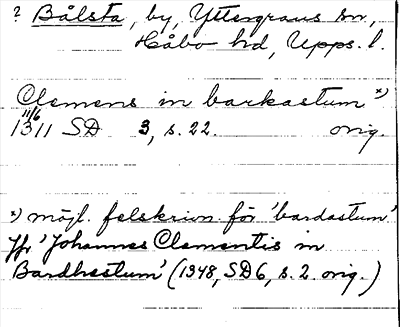 ? Bålsta, by, Yttergrans sn,
Håbo hd, Upps. l.
Clemens in barkastum x)
11/6
1311 SD 3, s. 22. orig.
x) möjl. felskrivn. för 'bardastum'
Jfr 'Johannes Clementis in
Bardhestum' (1348, SD6, s. 2. orig.)